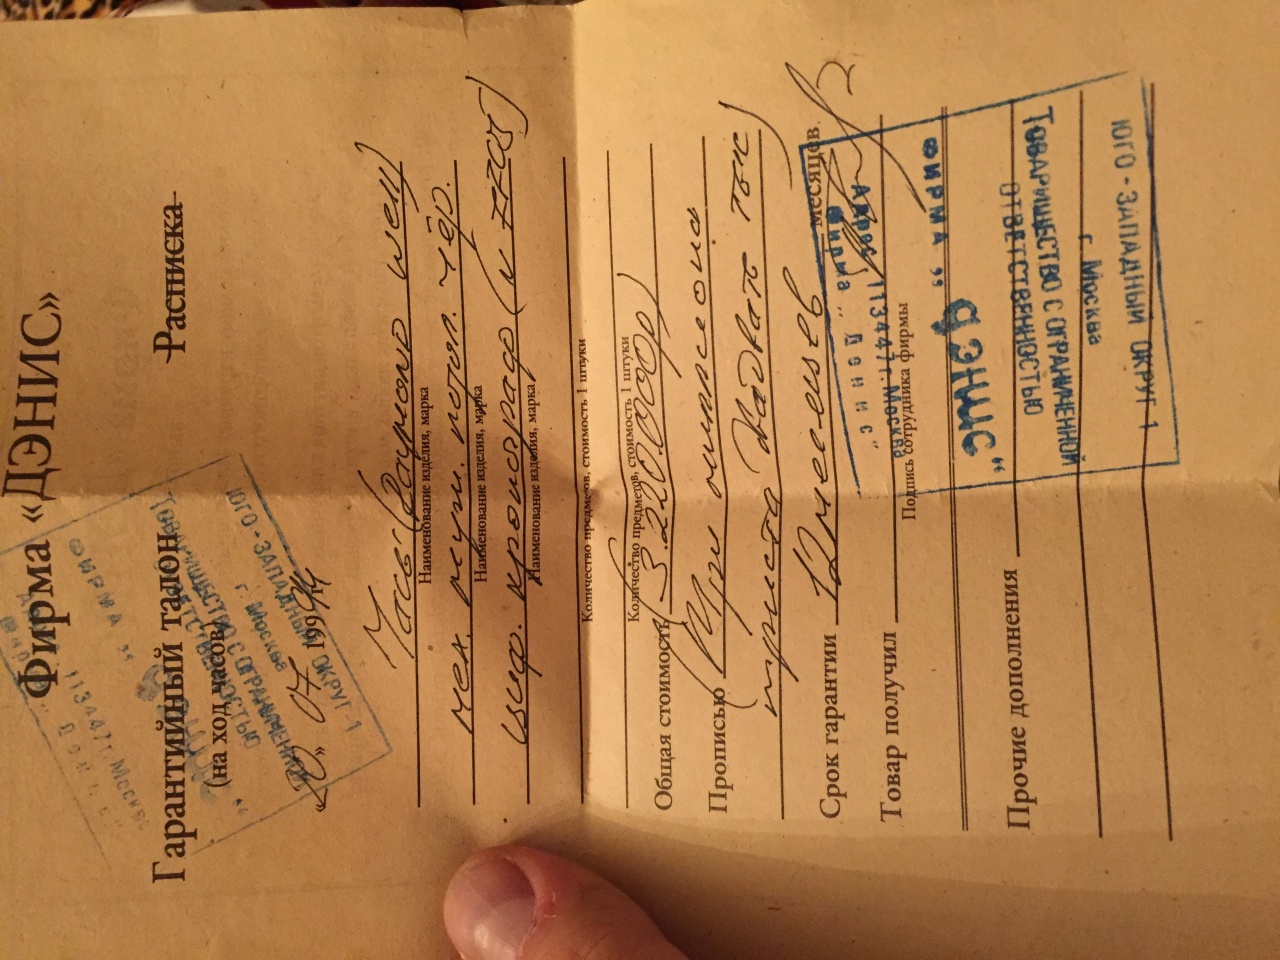 Фирма «ДЭНИС»
Гарантийный талон Расписка
(на ход часов)
«20» 07 1994 г.
Часы (Раумонд
Наименование изделия, марка
мех. муж. потоп. чёр.
Наименование изделия, марка
циф.
Наименование изделия, марка
Количество предметов, стоимость 1 штуки
Количество предметов, стоимость 1 штуки
Общая стоимость 3.220.000р)
Прописью (Три миллиона
триста двадцать тыс)
Срок гарантии 12 месяцев месяцев
Товар получил
Подпись сотрудника фирмы
Прочие дополнения
ЮГО-ЗАПАДНЫЙ ОКРУГ-1
г. Москва
ТОВАРИЩЕСТВО С ОГРАНИЧЕННОЙ
ОТВЕТСТВЕННОСТЬЮ
ФИРМА „
ДЭНИС“
Адрес 113447 г. Москва
Фирма „Дэнис“
ЮГО-ЗАПАДНЫЙ ОКРУГ-1
г. Москва
ФИРМА „
113447 г. Москва